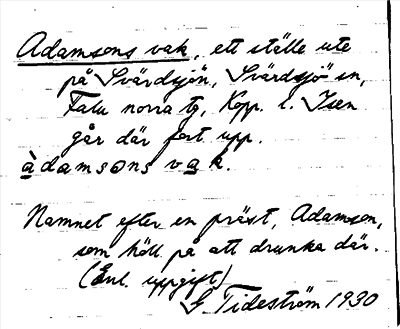 Adamsons vak, ett ställe ute
på Svärdsjön, Svärdsjö sn,
Falu norra tg, Kopp. l. Isen
går där fort upp.
àdamsons vak.
Namnet efter en präst, Adamson,
som höll på att drunkna där.
(Enl. uppgift)
G Tideström 1930